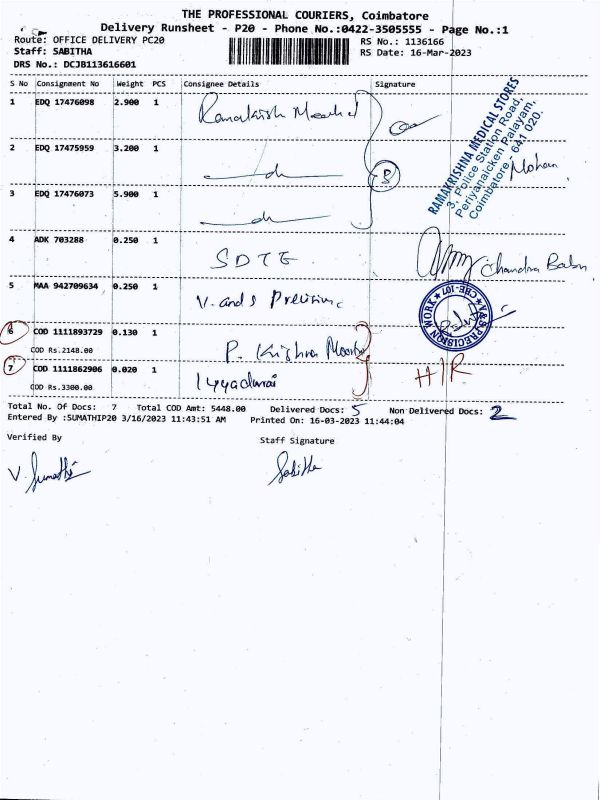 THE PROFESSIONAL COURIERS, Coimbatore
Delivery Runsheet - P20 - Phone No.:0422-3505555 - Page No.:1
Route: OFFICE DELIVERY PC20 RS No.: 1136166
Staff: SABITHA RS Date: 16-Mar-2023
DRS No.: DCJB113616601
S No Consignment No Weight PCS Consignee Details Signature
1 EDQ 17476098 2.900 1
RAMAKRISHNA MEDICAL STORES
3, Police Station Road,
Periyanaicken Palayam,
Coimbatore - 641 020.
2 EDQ 17475959 3.200 1 Mohan
3 EDQ 17476073 5.900 1
4 ADK 703288 0.250 1 SDTE Chandra Babu
5 MAA 942709634 0.250 1 V. and S Precision
V&S PRECISION WORK ★ CBE-107 ★
6 COD 1111893729 0.130 1 P. Krishna Moorthy
COD Rs.2148.00
7 COD 1111862906 0.020 1 Iyyadurai
COD Rs.3300.00
HIR
Total No. Of Docs: 7 Total COD Amt: 5448.00 Delivered Docs: 5 Non Delivered Docs: 2
Entered By :SUMATHIP20 3/16/2023 11:43:51 AM Printed On: 16-03-2023 11:44:04
Verified By Staff Signature
V. Sumathi Sabitha